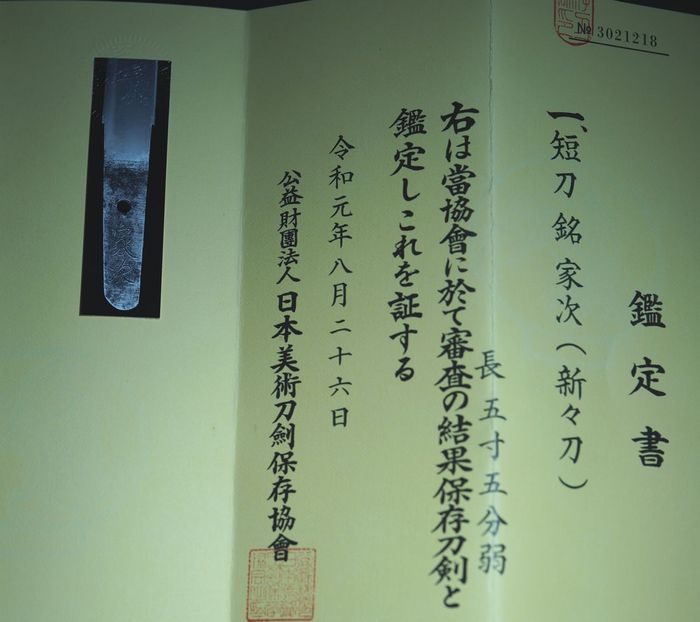 № 3021218
鑑定書
一、短刀 銘 家次(新々刀)
長 五寸五分弱
右は當協會に於て審査の結果保存刀剣と
鑑定しこれを証する
令和元年八月二十六日
公益財團法人 日本美術刀劍保存協會